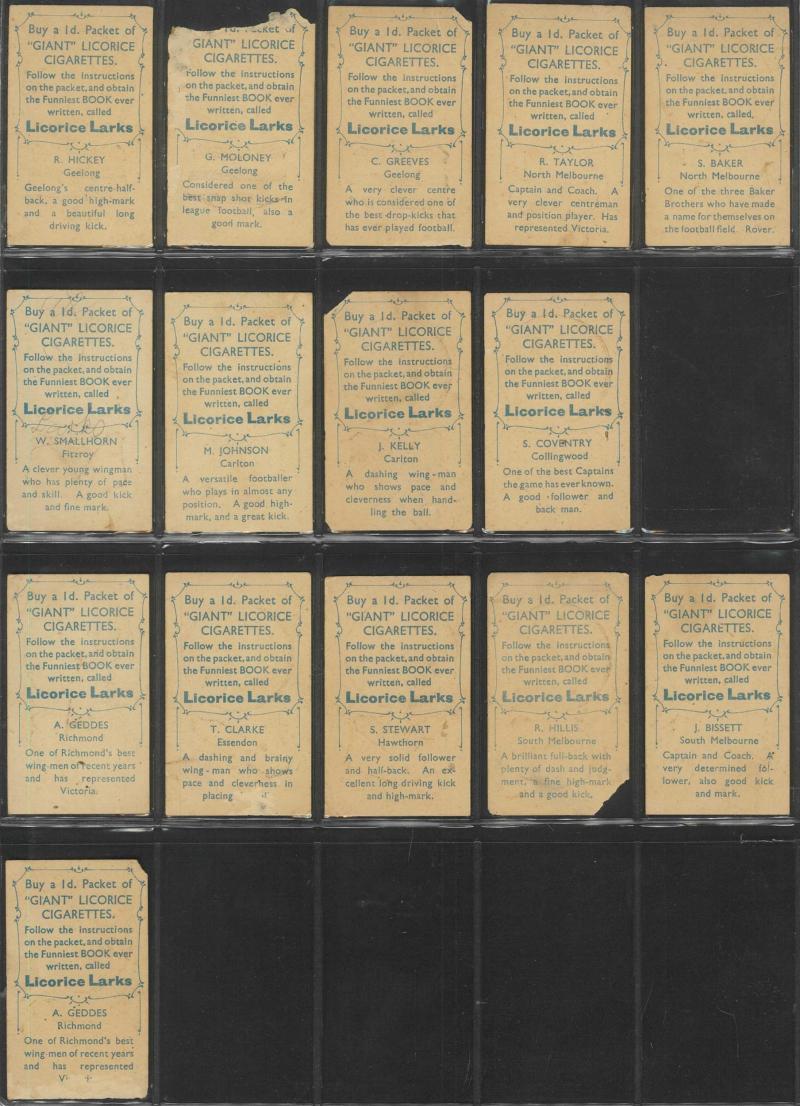 Buy a 1d. Packet of
"GIANT" LICORICE
CIGARETTES.
Follow the instructions
on the packet, and obtain
the Funniest BOOK ever
written, called
Licorice Larks
R. HICKEY
Geelong
Geelong's centre-half-
back, a good high-mark
and a beautiful long
driving kick.
Packet of
"GIANT" LICORICE
CIGARETTES.
Follow the instructions
on the packet, and obtain
the Funniest BOOK ever
written, called
Licorice Larks
G. MOLONEY
Geelong
Considered one of the
best snap shot kicks in
league football, also a
good mark.
Buy a 1d. Packet of
"GIANT" LICORICE
CIGARETTES.
Follow the instructions
on the packet, and obtain
the Funniest BOOK ever
written, called
Licorice Larks
C. GREEVES
Geelong
A very clever centre
who is considered one of
the best drop-kicks that
has ever played football.
Buy a 1d. Packet of
"GIANT" LICORICE
CIGARETTES.
Follow the instructions
on the packet, and obtain
the Funniest BOOK ever
written, called
Licorice Larks
R. TAYLOR
North Melbourne
Captain and Coach. A
very clever centreman
and position player. Has
represented Victoria.
Buy a 1d. Packet of
"GIANT" LICORICE
CIGARETTES.
Follow the instructions
on the packet, and obtain
the Funniest BOOK ever
written, called,
Licorice Larks
S. BAKER
North Melbourne
One of the three Baker
Brothers who have made
a name for themselves on
the football field. Rover.
Buy a 1d. Packet of
"GIANT" LICORICE
CIGARETTES.
Follow the instructions
on the packet, and obtain
the Funniest BOOK ever
written, called
Licorice Larks
W. SMALLHORN
Fitzroy
A clever young wingman
who has plenty of pace
and skill. A good kick
and fine mark.
Buy a 1d. Packet of
"GIANT" LICORICE
CIGARETTES.
Follow the instructions
on the packet, and obtain
the Funniest BOOK ever
written, called
Licorice Larks
M. JOHNSON
Carlton
A versatile footballer
who plays in almost any
position. A good high-
mark, and a great kick.
Buy a 1d. Packet of
"GIANT" LICORICE
CIGARETTES.
Follow the instructions
on the packet, and obtain
the Funniest BOOK ever
written, called
Licorice Larks
J. KELLY
Carlton
A dashing wing-man
who shows pace and
cleverness when hand-
ling the ball.
Buy a 1d. Packet of
"GIANT" LICORICE
CIGARETTES.
Follow the instructions
on the packet, and obtain
the Funniest BOOK ever
written, called
Licorice Larks
S. COVENTRY
Collingwood
One of the best Captains
the game has ever known.
A good follower and
back man.
Buy a 1d. Packet of
"GIANT" LICORICE
CIGARETTES.
Follow the instructions
on the packet, and obtain
the Funniest BOOK ever
written, called
Licorice Larks
A. GEDDES
Richmond
One of Richmond's best
wing-men of recent years
and has represented
Victoria.
Buy a 1d. Packet of
"GIANT" LICORICE
CIGARETTES.
Follow the instructions
on the packet, and obtain
the Funniest BOOK ever
written, called
Licorice Larks
T. CLARKE
Essendon
A dashing and brainy
wing-man who shows
pace and cleverness in
placing
Buy a 1d. Packet of
"GIANT" LICORICE
CIGARETTES.
Follow the instructions
on the packet, and obtain
the Funniest BOOK ever
written, called
Licorice Larks
S. STEWART
Hawthorn
A very solid follower
and half-back. An ex-
cellent long driving kick
and high-mark.
Buy a 1d. Packet of
"GIANT" LICORICE
CIGARETTES.
Follow the instructions
on the packet, and obtain
the Funniest BOOK ever
written, called
Licorice Larks
R. HILLIS
South Melbourne
A brilliant full-back with
plenty of dash and judg-
ment, a fine high-mark
and a good kick.
Buy a 1d. Packet of
"GIANT" LICORICE
CIGARETTES.
Follow the instructions
on the packet, and obtain
the Funniest BOOK ever
written, called
Licorice Larks
J. BISSETT
South Melbourne
Captain and Coach. A
very determined fol-
lower, also good kick
and mark.
Buy a 1d. Packet of
"GIANT" LICORICE
CIGARETTES.
Follow the instructions
on the packet, and obtain
the Funniest BOOK ever
written, called
Licorice Larks
A. GEDDES
Richmond
One of Richmond's best
wing-men of recent years
and has represented